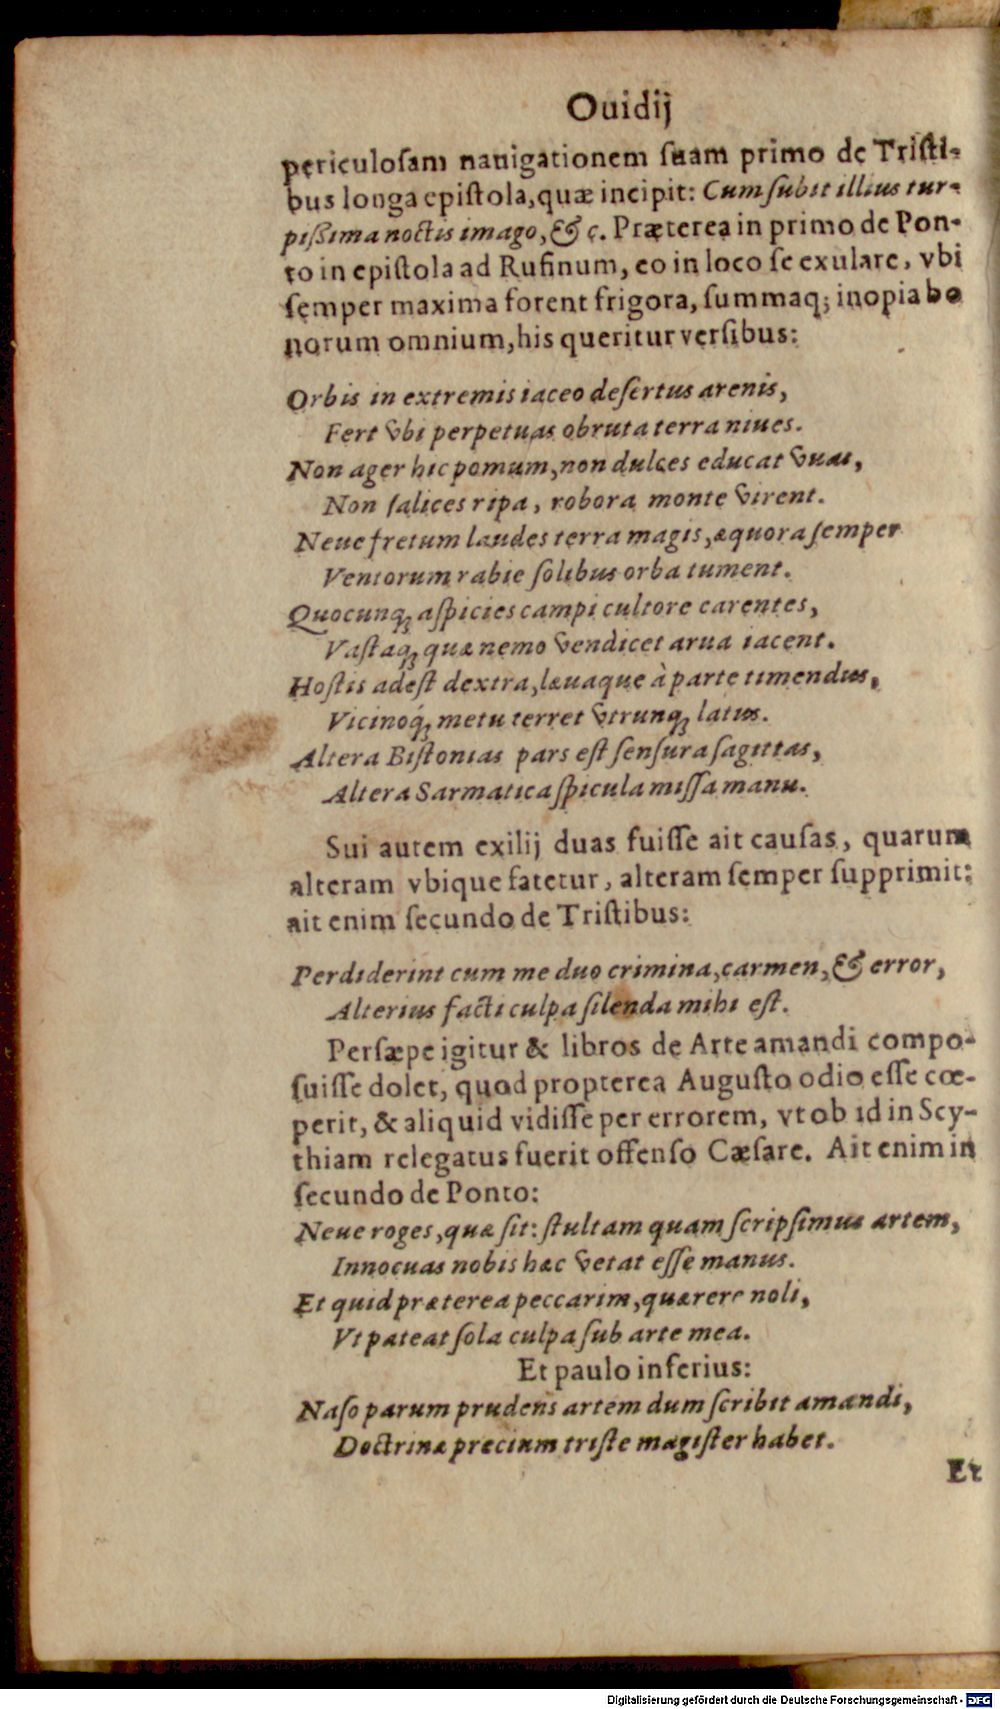 Ouidij
periculosam nauigationem suam primo de Tristi-
bus longa epistola, quæ incipit: Cum subit illius tur-
pißima noctis imago, & c. Præterea in primo de Pon-
to in epistola ad Rufinum, eo in loco se exulare, vbi
semper maxima forent frigora, summaq; inopia bo
norum omnium, his queritur versibus:
Orbis in extremis iaceo desertus arenis,
Fert vbi perpetuas obruta terra niues.
Non ager hic pomum, non dulces educat vuas,
Non salices ripa, robora monte virent.
Neue fretum laudes terra magis, æquora semper
Ventorum rabie solibus orba tument.
Quocunq; aspicies campi cultore carentes,
Vastaq; quæ nemo vendicet arua iacent.
Hostis adest dextra, læuaque à parte timendus,
Vicinoq́; metu terret vtrunq; latus.
Altera Bistonias pars est sensura sagittas,
Altera Sarmatica spicula missa manu.
Sui autem exilij duas fuisse ait causas, quarum
alteram vbique fatetur, alteram semper supprimit:
ait enim secundo de Tristibus:
Perdiderint cum me duo crimina, carmen, & error,
Alterius facti culpa silenda mihi est.
Persæpe igitur & libros de Arte amandi compo-
suisse dolet, quod propterea Augusto odio esse cœ-
perit, & aliquid vidisse per errorem, vt ob id in Scy-
thiam relegatus fuerit offenso Cæsare. Ait enim in
secundo de Ponto:
Neue roges, quæ sit: stultam quam scripsimus artem,
Innocuas nobis hæc vetat esse manus.
Et quid præterea peccarim, quærere noli,
Vt pateat sola culpa sub arte mea.
Et paulo inferius:
Naso parum prudens artem dum scribit amandi,
Doctrinæ precium triste magister habet.
Et
Digitalisierung gefördert durch die Deutsche Forschungsgemeinschaft - DFG